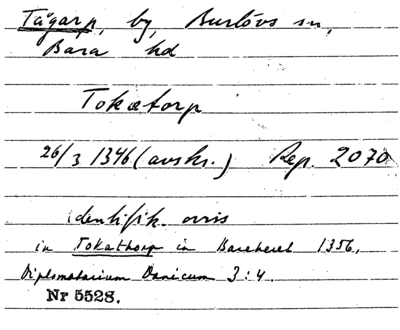 Tågarp, by, Burlövs sn,
Bara hd
Tokætorp
26/3 1346 (avskr.) Rep. 2070
identifik. ovis
in Tokathorp in Bareheret 1356,
Diplomatarium Danicum 3:4.
Nr 5528.